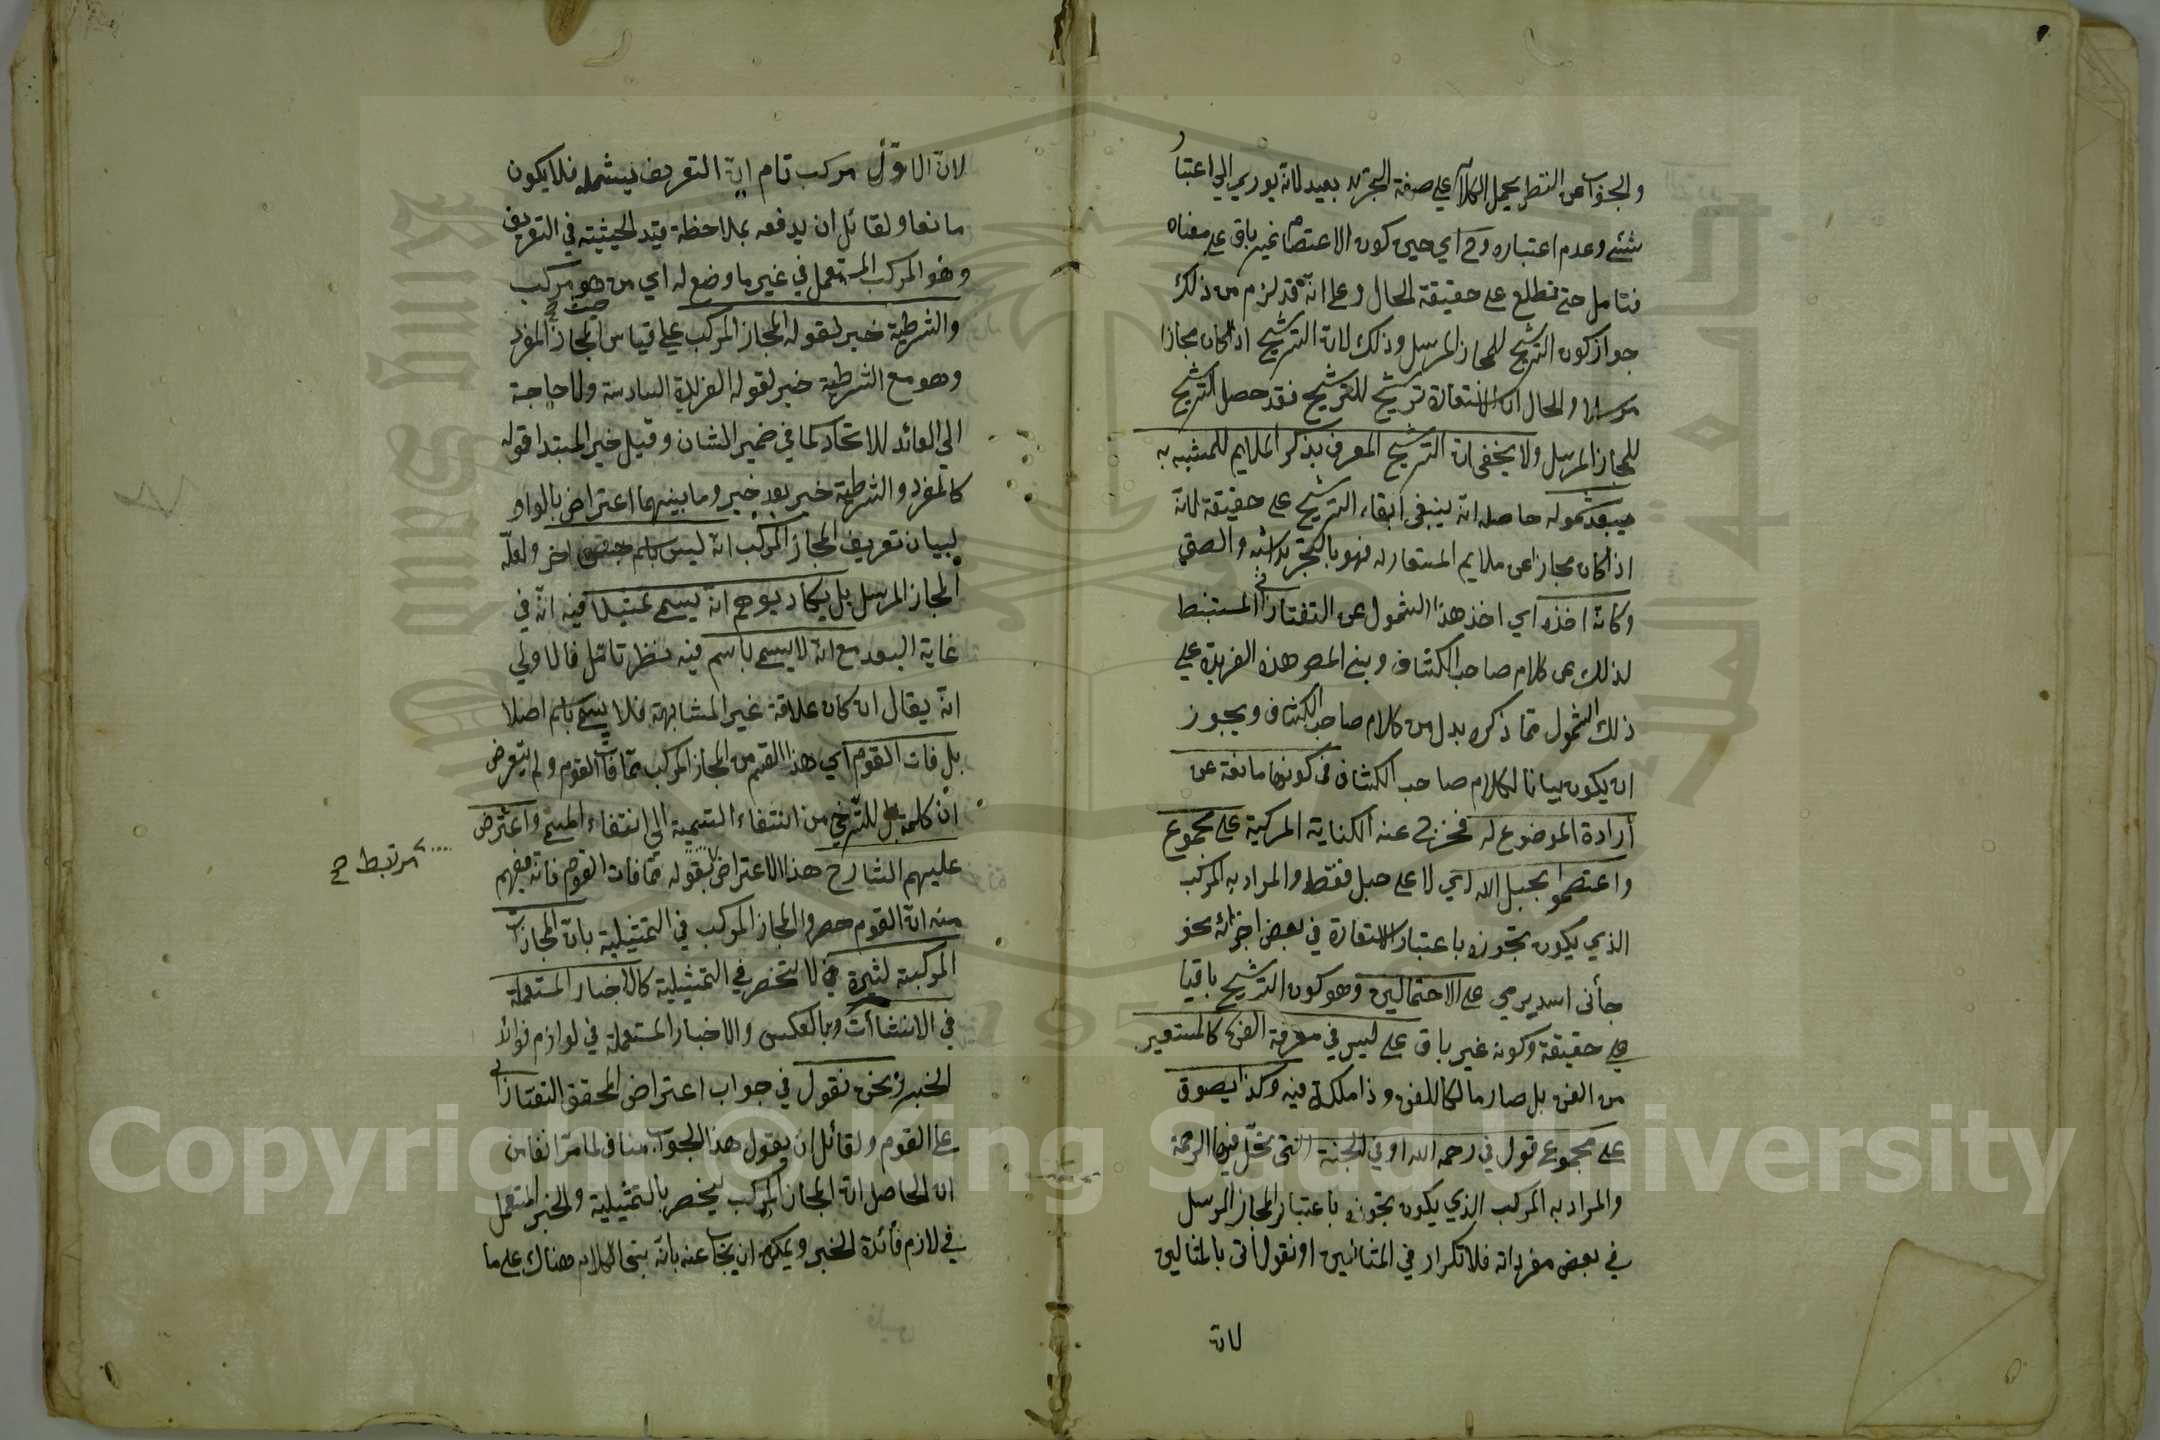 والجواب عن النظر يحمل الكلام على صفة التجريد بعيد لانه يوريم الى اعتبار
شئ وعدم اعتباره وح اي حين كون الاعتصام غير باق على معناه
فتامل حتى تطلع على حقيقة الحال وعلى انه قد لزم من ذلك
جواز كون الترشيح للمجاز المرسل وذلك لان الترشيح اذا كان مجازا
مرسلا والحال ان الاستعارة ترشيح للترشيح فقد حصل الترشيح
للمجاز المرسل ولا يخفى ان الترشيح المعرف بذكر الملايم للمشبه به
يبعد شموله حاصله انه ينبغي ابقاء الترشيح على حقيقة لانه
اذا كان مجازا عن ملايم المستعار له فهو بالتجريد اشبه والصق
وكانه اخذه اي اخذ هذا الشمول عن التفتازاني المستنبط
لذلك عن كلام صاحب الكشاف وبنى المص هذه الفريدة على
ذلك الشمول مما ذكره بدل من كلام صاحب الكشاف ويجوز
ان يكون بيانا لكلام صاحب الكشاف في كونها مانعة عن
ارادة الموضوع له فخرج عنه الكناية المركبة على مجموع
واعتصموا بحبل الله اي لا على حبل فقط والمراد به المركب
الذي يكون تجوزه باعتبار الاستعارة في بعض اجزائه نحو
جأنى اسد يرمي على الاحتمالين وهو كون الترشيح باقيا
على حقيقة وكونه غير باق على ليس في معرفة الفن كالمستعير
من الفن بل صار مالكا للفن وذا ملكة فيه وكذا يصوق
على مجموع قول في رحمه الله اوفي الجنة التى تحل فيها الرحمة
والمراد به المركب الذي يكون تجوزه باعتبار المجاز المرسل
في بعض مفرداته فلا تكرار في المثالين او نقول اتى بالمثالين
لان
لان الاول مركب تام ان التعريف يشمله فلا يكون
مانعا ولقائل ان يدفعه بملاحظة قيد الحيثية في التعريف
وهو المركب المستعمل في غير ما وضع له اي من هو مركب
حيث
والشرطية خبر لقوله المجاز المركب على قياس المجاز المفرد
وهو مع الشرطية خبر لقوله الفريدة السادسة ولا حاجة
الى العائد للاتحاد كما في ضمير الشان وقيل خبر المبتدا قوله
كالمفرد والشرطية خبر بعد خبر وما بينهما اعتراض بالواو
لبيان تعريف المجاز المركب انه ليس باسم اخر ولعله
المجاز المرسل بل يكاد يوهم انه يسمى تمثيلا فيه انه في
غاية البعد مع انه لا يسمى باسم فيه نظر تامل فالاولى
انه يقال ان كان علاقة غير المشابهة فلا يسمى باسم اصلا
بل فات القوم اي هذا القسم من المجاز المركب مما فات القوم ولم يتعرض
ان كلمة بل للترقي من انتفاء التسمية الى انتفاء المسمى واعترض
عليهم الشارح هذا الاعتراض لقوله مما فات القوم فانه يفهم
مرتبط ح
منه ان القوم حصروا المجاز المركب في التمثيلية بان المجازات
المركبة كثيرة لا تنحصر في التمثيلية كالاخبار المستعملة
في الانشاأت وبالعكس والاخبار المستعملة في لوازم فوائد
الخبر ونحن نقول في جواب اعتراض المحقق التفتازاني
على القوم ولقائل ان يقول هذا الجواب مناف لما مر انفا من
ان الحاصل ان المجاز المركب ينحصر بالتمثيلية والخبر المستعمل
في لازم فائدة الخبر ويمكن ان يجاب عنه بانه بنى الكلام هناك على ما
Copyright © King Saud University
1957